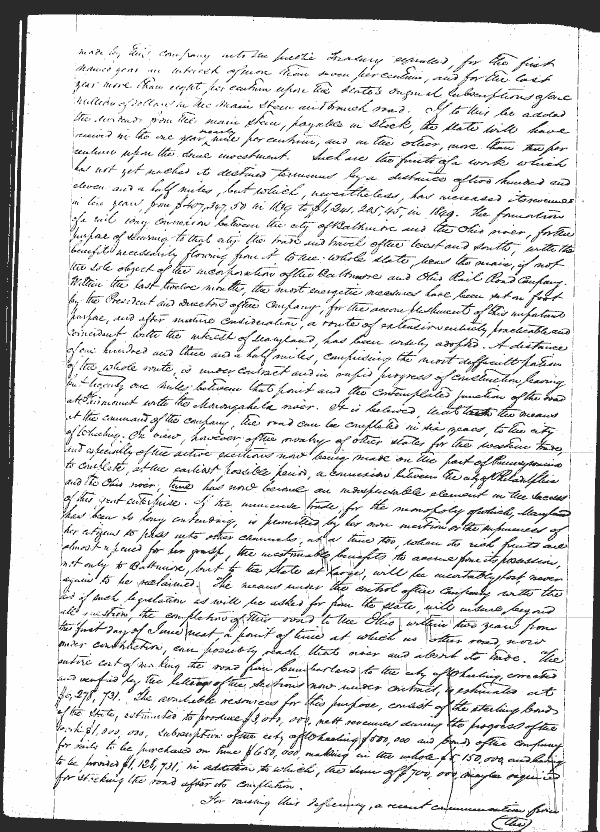 made by this company into the public Treasury equaled, for the first
named year an interest of more than seven per centum, and for the last
year more than eight, per centum upon the State's original subscriptions of one
million of dollars in the main stem and branch road. If to this be added
the dividends from the main stem, payable in stock, the state will have
received in the one year nearly nine per centum, and in the other, more than per
centum upon the same investment. Such are the fruits of a work which
has not yet reached its destined terminus by a distance of two hundred and
eleven and a half miles, but which, nevertheless, has increased its revenues
in ten years, from to in The foundation
of a rail way connexion between the city of Baltimore and the Ohio river, for the
purpose of securing to that city the trade and travel of the west and south, with the
benefits necessarily flowing from it to the whole state, was the main, if not
the sole object of the incorporation of the Baltimore and Ohio Rail Road Company.
Within the last twelve months, the most energetic measures have been put on foot
by the President and Directors of the Company, for the accomplishment of this important
purpose, and after mature consideration, a route of extension entirely practicable and
coincident with the interest of Maryland, has been wisely adopted. A distance
of one hundred and three and a half miles, comprising the most difficult portion
of the whole route, is under contract and in rapid progress of construction leaving
but twenty one miles between that point and the contemplated junction of the road
at Fairmount with the Monongahela river. It is believed, that with the means
at the command of the company, the road can be completed in six years, to the city
of Wheeling. In view, however of the rivalry of other states for the western trade,
and especially of the active exertions now being made on the part of Pennsylvania
to complete, at the earliest possible period, a connexion between the city of Philadelphia
and the Ohio river, time has now become an indispensable element in the success
of this great enterprise. If the immense trade, for the monopoly of which, Maryland
has been so long contending, is permitted by her own inertion or the supineness of
her citizens to pass into other channels, at a time too, when its rich fruits are
almost ripened for her grasp, the inestimable benefits to accrue from its possession,
not only to Baltimore, but to the State at large, will be inevitably lost never
again to be reclaimed. The means under the control of the Company with the
aid of such legislation as will be asked for from the state, will insure, beyond
all question, the completion of this road to the Ohio, within two years from
the first day of June next, a point of time at which no other road, now
under construction, can possibly reach that river and divert its trade. The
entire cost of making the road from Cumberland to the city of Wheeling, corrected
and verified by the letting of the sections now under contract, is estimated at
$6,278,731. The available resources for this purpose, consist of the sterling bonds
of the State, estimated to produce nett revenues during the progress of the
work $1,000,000, subscription of the city of Wheeling $500,000 and bonds of the company
for rails to be purchased on time $650,000 making in the whole $5,150,000, and leaving
to be provided $1,128,731, in addition to which, the sum of $700,000, may be required
for stocking the road after its completion.
For raising this deficiency, a recent communication from
(the)